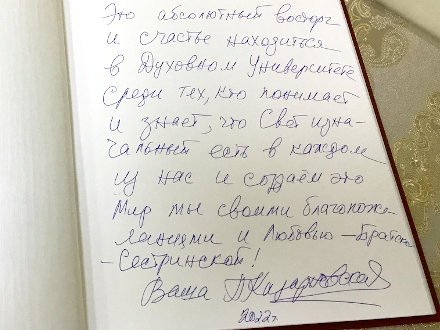 Это абсолютный восторг
и счастье находиться
в Духовном Университете
среди тех, кто понимает
и знает, что Свет изна-
чальный есть в каждом
из нас и создаём это
Мир мы своими благопоже-
ланиями и Любовью – Братско-
-Сестринской!
Ваша
2022г.